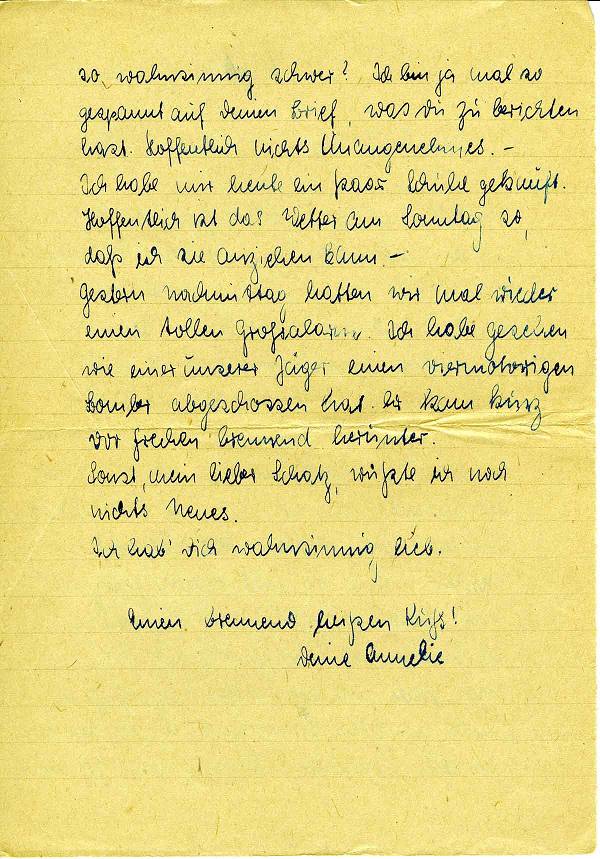 so wahnsinnig schwer? Ich bin ja mal so
gespannt auf deinen Brief, was du zu berichten
hast. Hoffentlich nichts Unangenehmes. –
Ich habe mir heute ein paar Schuhe gekauft.
Hoffentlich ist das Wetter am Sonntag so,
daß ich sie anziehen kann. –
Gestern nachmittag hatten wir mal wieder
einen tollen Großalarm. Ich habe gesehen
wie einer unserer Jäger einen viermotorigen
Bomber abgeschossen hat. Er kam kurz
vor Frechen brennend herunter.
Sonst, mein lieber Schatz, wüßte ich noch
nichts Neues.
Ich hab' dich wahnsinnig lieb.
Einen brennend heißen Kuß!
Deine Annelie